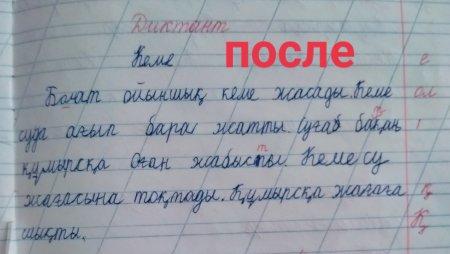 Диктант
Кеме
после
е
Болат ойыншық кеме жасады. Кеме
ол
суда ағып бара жатты. Суға
құмырсқа оған жабысты. Кеме су
т
жағасына тоқтады. Құмырсқа жағаға
қ
шықты.
Қ